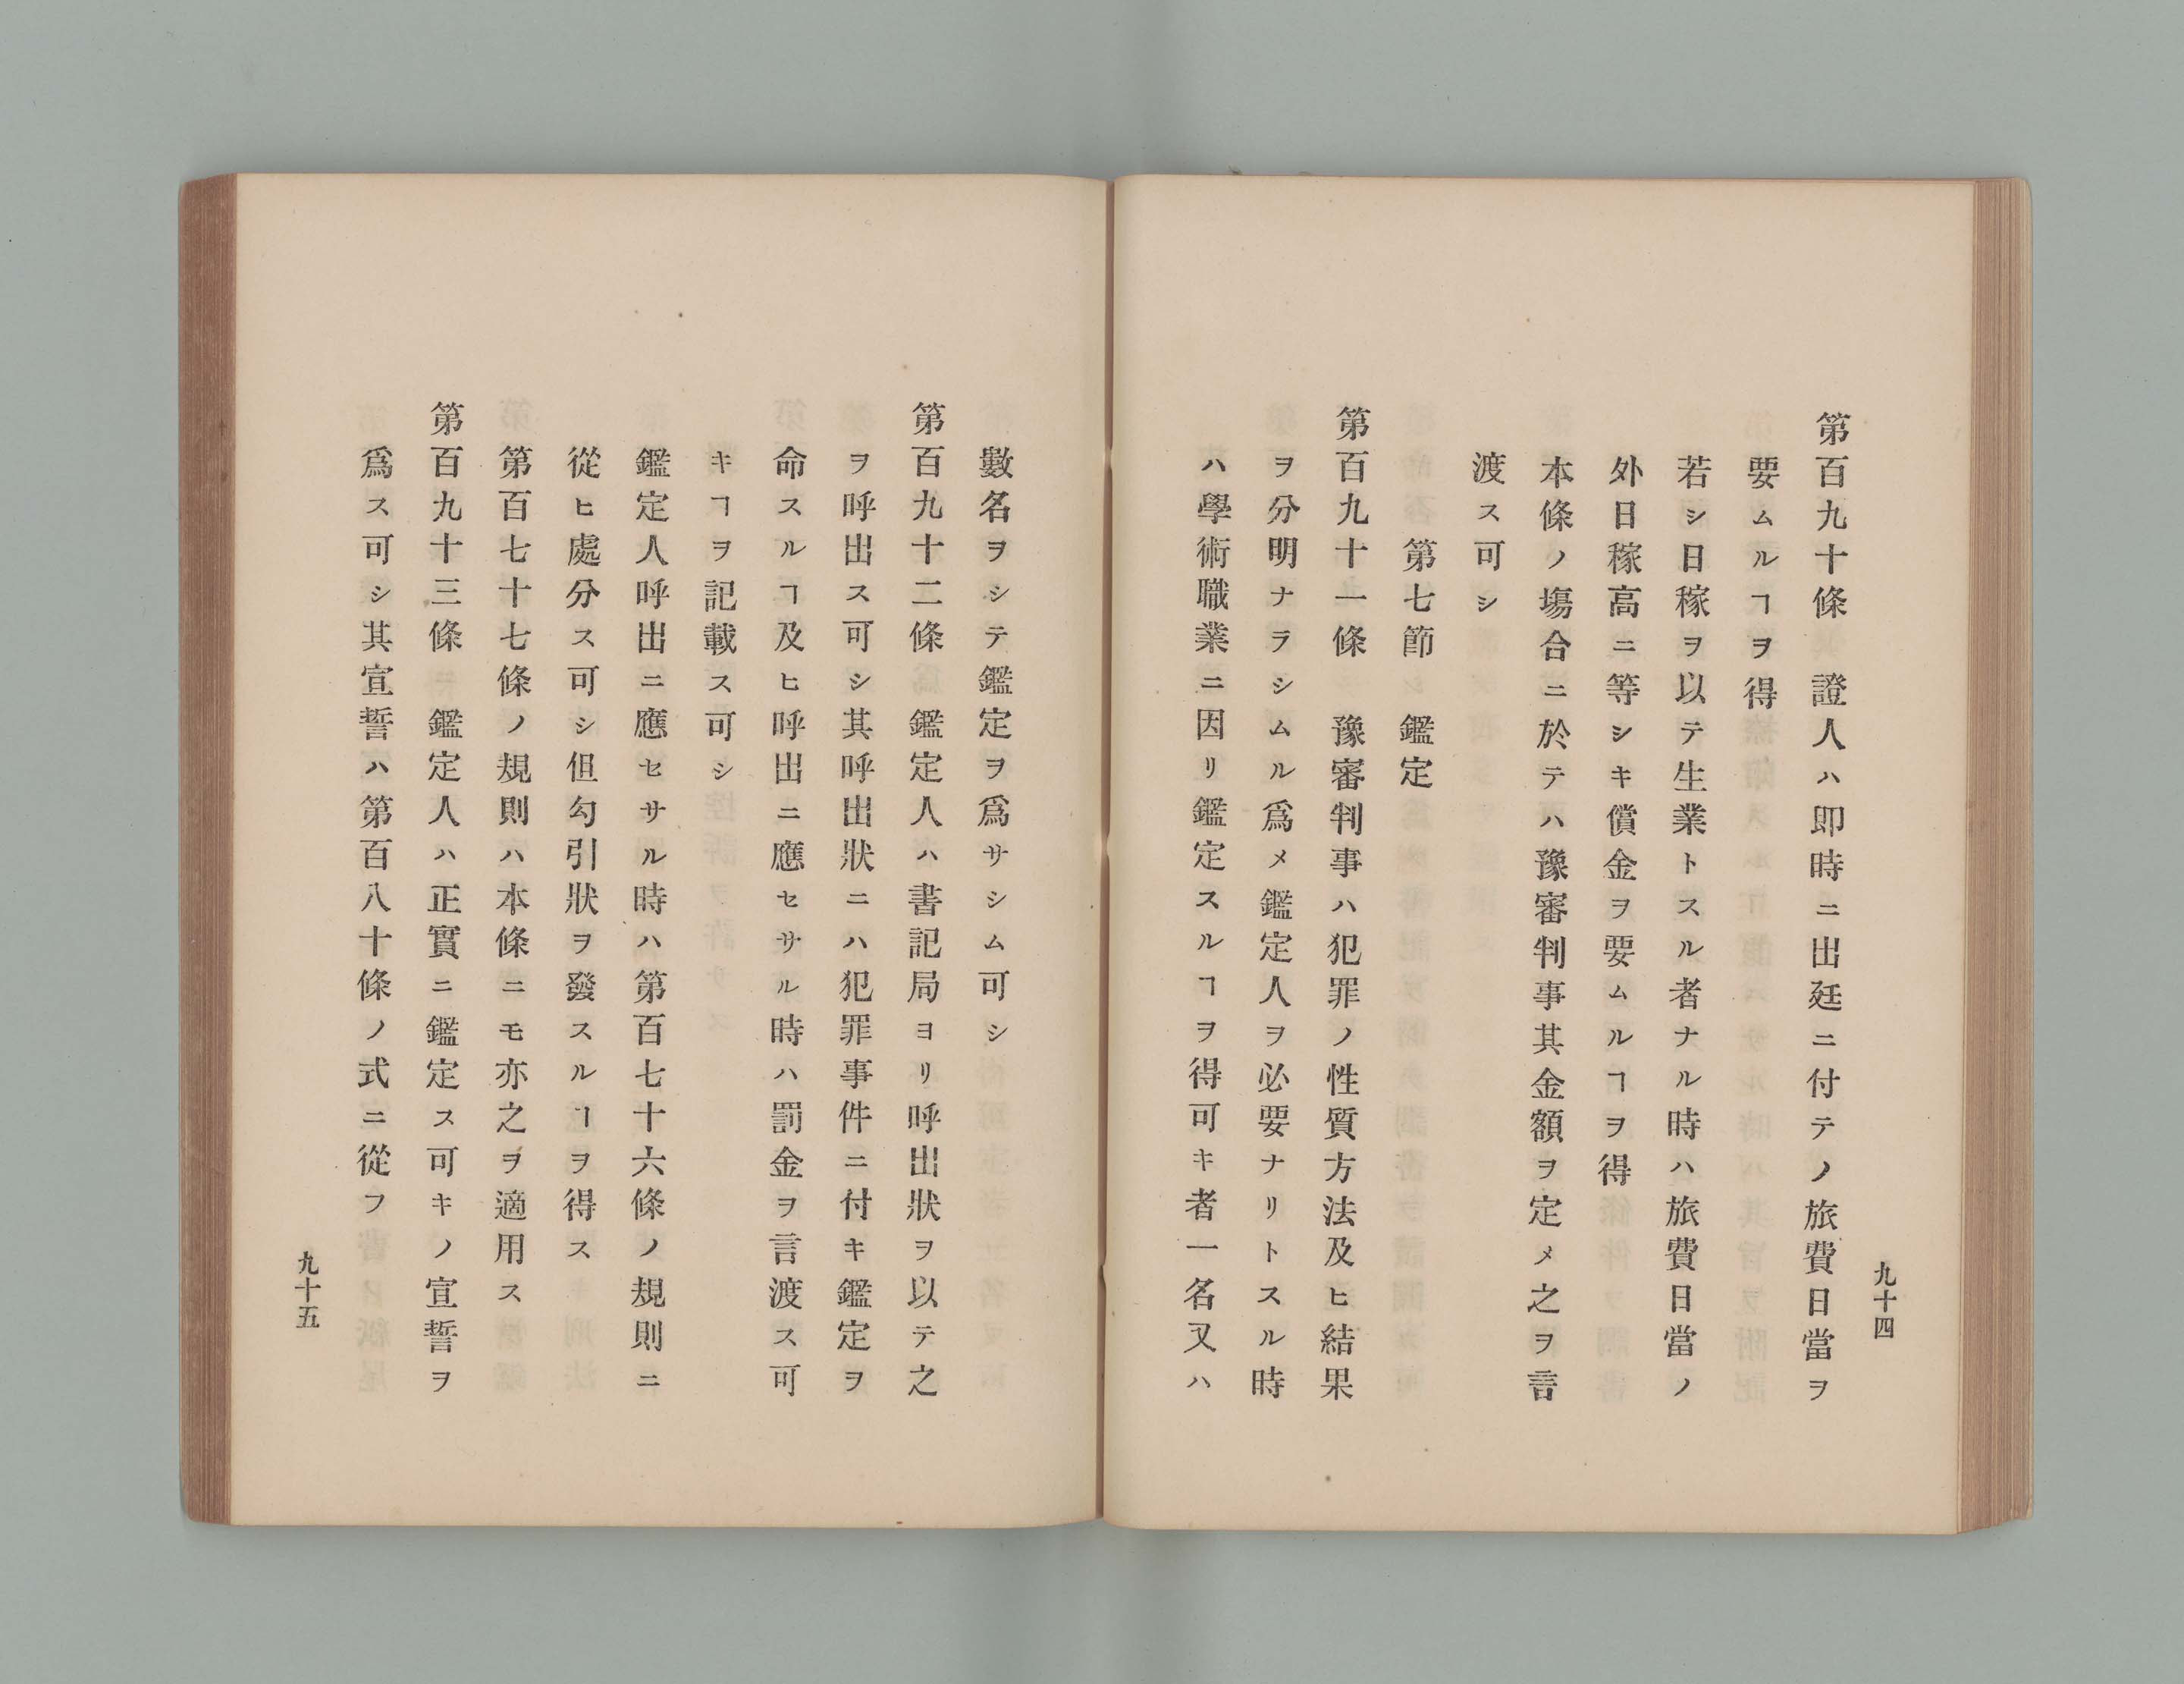 九十四
第百九十條　證人ハ即時ニ出廷ニ付テノ旅費日當ヲ
要ムルヿヲ得
若シ日稼ヲ以テ生業トスル者ナル時ハ旅費日當ノ
外日稼高ニ等シキ償金ヲ要ムルヿヲ得
本條ノ塲合ニ於テハ豫審判事其金額ヲ定メ之ヲ言
渡ス可シ
第七節　鑑定
第百九十一條　豫審判事ハ犯罪ノ性質方法及ヒ結果
ヲ分明ナラシムル爲メ鑑定人ヲ必要ナリトスル時
ハ學術職業ニ因リ鑑定スルヿヲ得可キ者一名又ハ
數名ヲシテ鑑定ヲ爲サシム可シ
第百九十二條　鑑定人ハ書記局ヨリ呼出狀ヲ以テ之
ヲ呼出ス可シ其呼出狀ニハ犯罪事件ニ付キ鑑定ヲ
命スルヿ及ヒ呼出ニ應セサル時ハ罰金ヲ言渡ス可
キヿヲ記載ス可シ
鑑定人呼出ニ應セサル時ハ第百七十六條ノ規則ニ
從ヒ處分ス可シ但勾引狀ヲ發スルヿヲ得ス
第百七十七條ノ規則ハ本條ニモ亦之ヲ適用ス
第百九十三條　鑑定人ハ正實ニ鑑定ス可キノ宣誓ヲ
爲ス可シ其宣誓ハ第百八十條ノ式ニ從フ
九十五